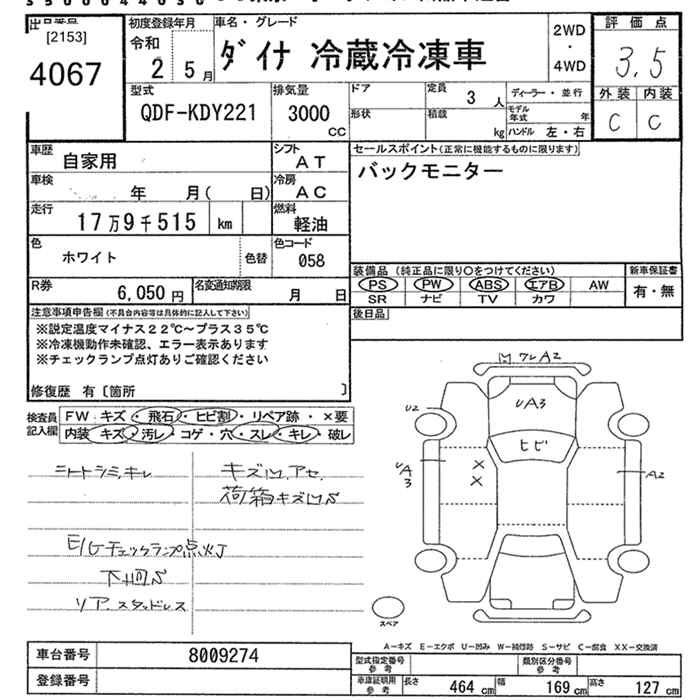 出品番号
[2153]
4067
初度登録年月
令和
2 5月
車名・グレード
ダイナ 冷蔵冷凍車
2WD
・
4WD
評価点
3.5
外装 内装
C C
型式
QDF-KDY221
排気量
3000
CC
ドア
定員
3 人
形状
積載
kg
ディーラー・並行
モデル年式 年
ハンドル 左・右
車歴
自家用
シフト
AT
車検
年 月( 日)
冷房
AC
走行
17万9千515 km
燃料
軽油
色
ホワイト
色替
色コード
058
R券
6,050円
名変通知期限
月 日
セールスポイント(正常に機能するものに限ります)
バックモニター
装備品 (純正品に限り○をつけてください)
PS PW ABS エアB AW
SR ナビ TV カワ
新車保証書
有・無
後日品
注意事項申告欄(不具合内容等は具体的に記入して下さい)
※設定温度マイナス22℃~プラス35℃
※冷凍機動作未確認、エラー表示あります
※チェックランプ点灯ありご確認ください
修復歴 有〔箇所 〕
検査員記入欄
FW キズ・飛石・ヒビ割・リペア跡・×要
内装 キズ・汚レ・コゲ・穴・スレ・キレ・破レ
シートラミ、キレ
キズ凹、アセ、
荷箱キズ凹S
E/Gチェックランプ点灯
下回S
リア スタッドレス
A2
U2
UA3
ヒビ
UA3
×
×
A2
スペア
A-キズ E-エクボ U-凹み W-補修跡 S-サビ C-腐食 XX-交換済
車台番号
8009274
登録番号
型式指定番号
参考
類別区分番号
参考
車庫証明用
参考
長さ 464 cm 幅 169 cm 高さ 127 cm